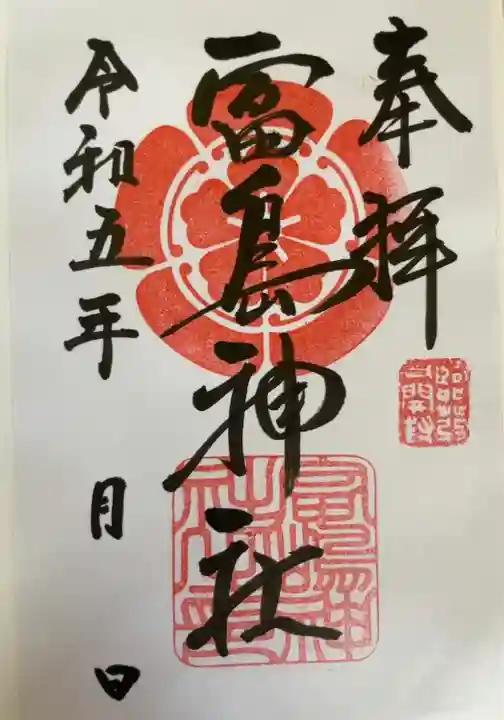 奉拝
富島神社
令和五年 月 日